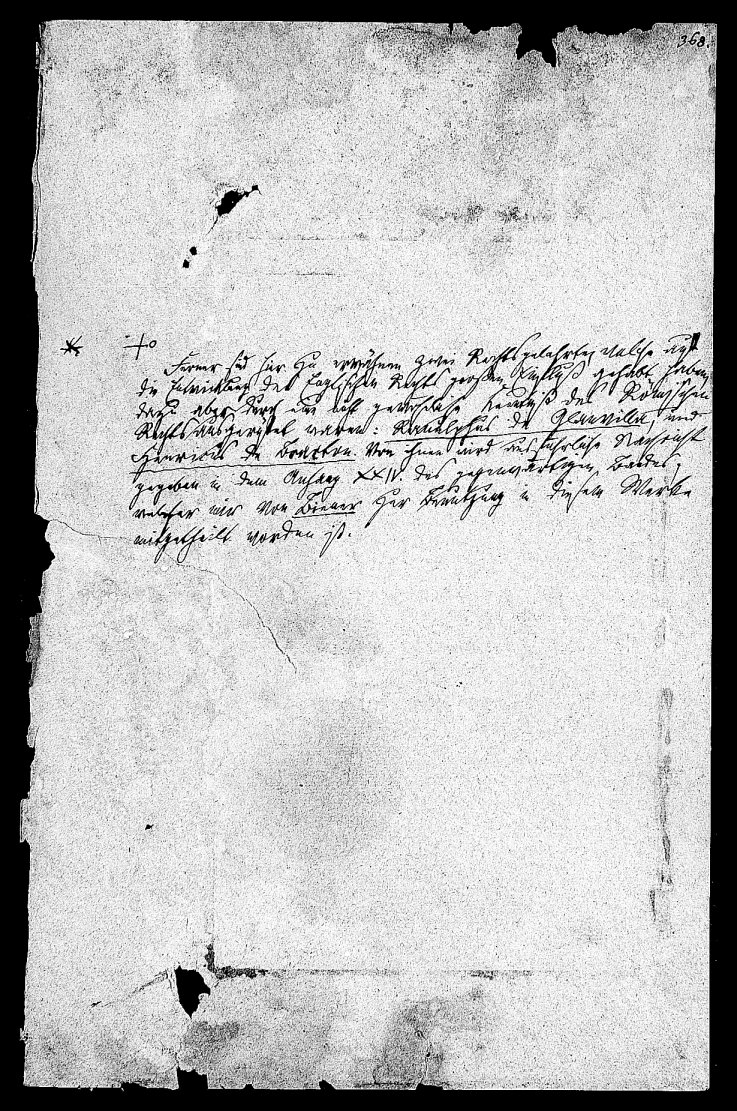 368.
* +o
Ferner sind hier zu erwähnen zwei Rechtsgelehrte, welche auf
die Entwicklung des Englischen Rechts großen Einfluß gehabt haben,
dazu aber durch eine gründliche Kenntniß des Römischen
Rechts ausgerüstet waren: Ranulphus de Glanvilla, und
Henricus de Bracton. Von ihnen wird ausführliche Nachricht
gegeben in dem Anhang XXIV. des gegenwärtigen Bandes,
welcher mir von Biener zur Benutzung in diesem Werke
mitgetheilt worden ist.